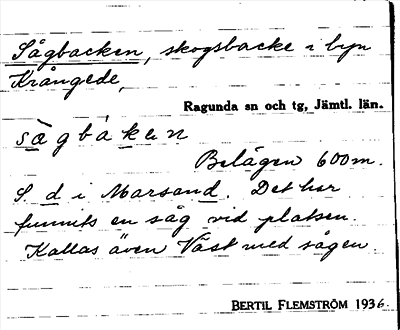 Sågbacken, skogsbacke i byn
Krångede,
Ragunda sn och tg, Jämtl. län.
sågbàken
Belägen 600 m.
S. d i Marsand. Det har
funnits en såg vid platsen.
Kallas även Väst med sågen
BERTIL FLEMSTRÖM 1936.